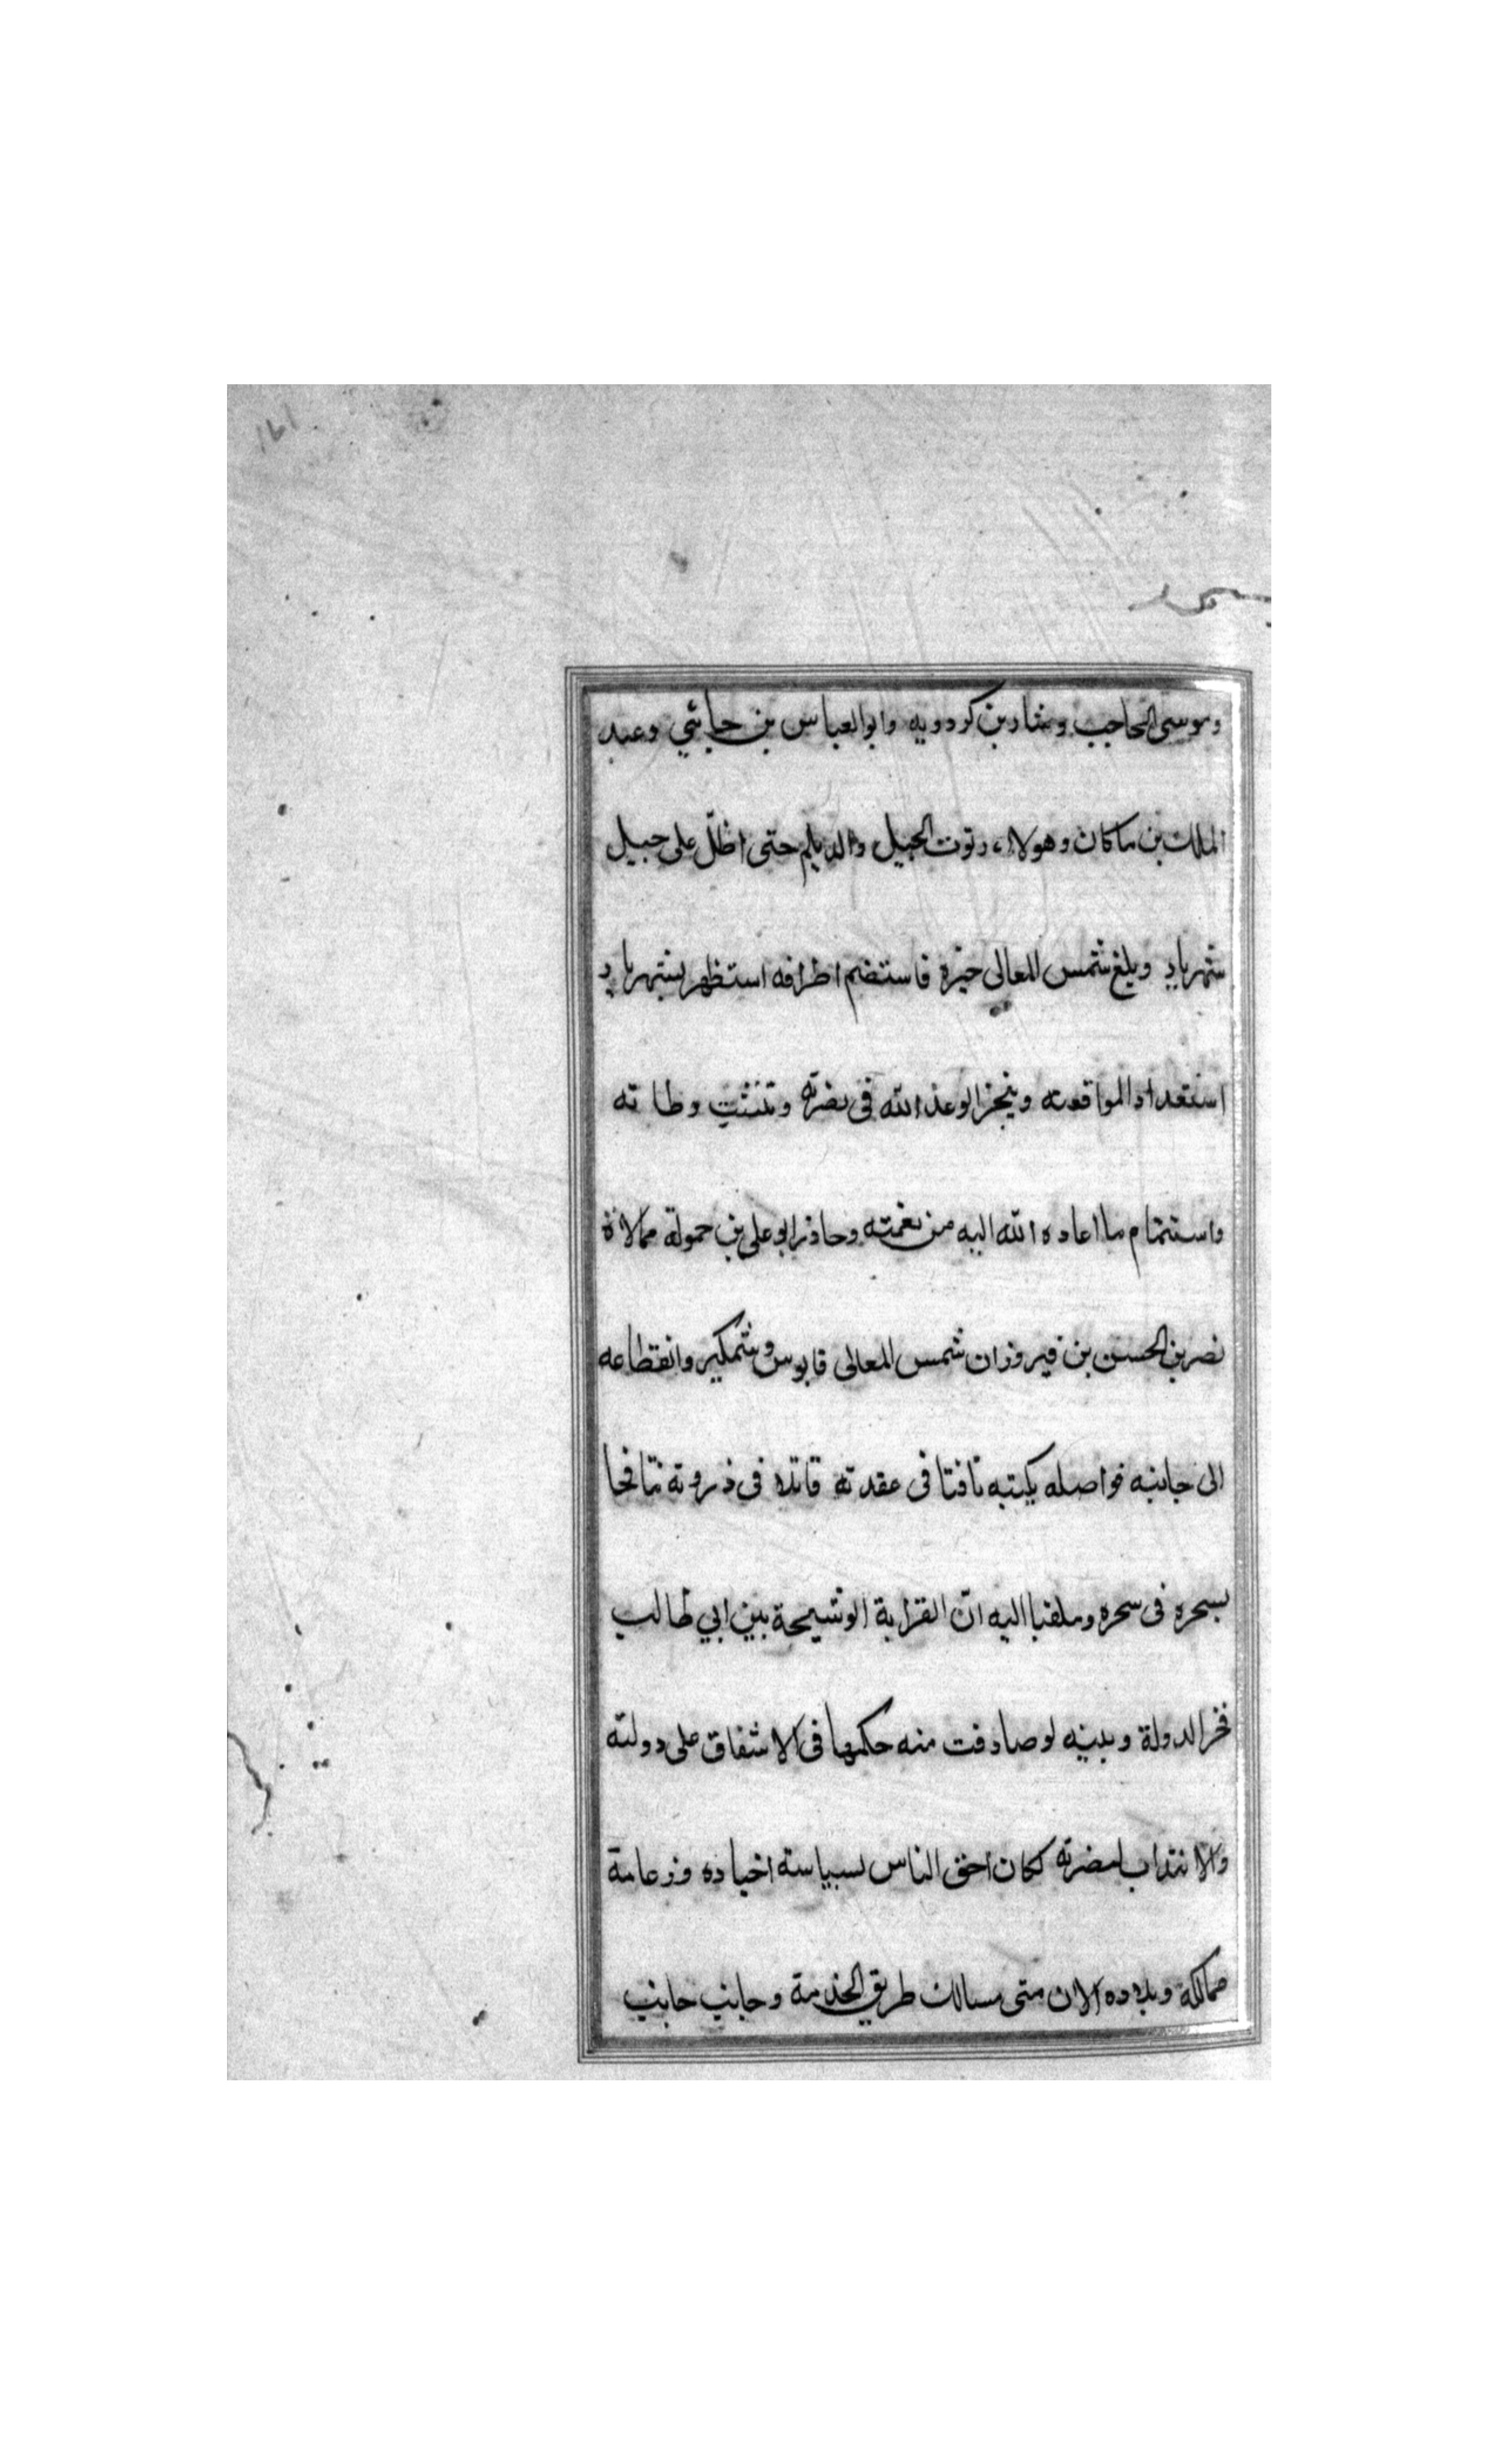 ١٦١
وموسى الحاجب وبنتار بن كردويه وابو العباس بن جابثي وعبد
الملك بن ماكان وهولاء رتوت الجيل والديلم حتى اظلّ على جبيل
شهريار وبلغ شمس المعالى خبره فاستضم اطرافه استظهر بشهريار
استعداد المواقعته وينجز الوعد الله فى نصرته وتثبت وطاته
واستتمام ما اعاده الله اليه من نعمته وحاذر ابو على بن حمولة ممالاة
نصر بن الحسن بن فيروزان شمس المعالى قابوس وشمكير وانقطاعه
الى جانبه فواصله بكتبه نافثا فى عقدته قاتلا فى ذروته نافخا
بسحره فى سحره وملقنا اليه انّ القرابة الوشيجة بين ابي طالب
فخر الدولة وبينه لو صادفت منه حكمها فى الاشفاق على دولته
والانتداب لنصرته لكان احق الناس بسياسته اخياده وزعامة
ممالكه وبلاده الان متى سالك طريق الخدمة وجانب جانب